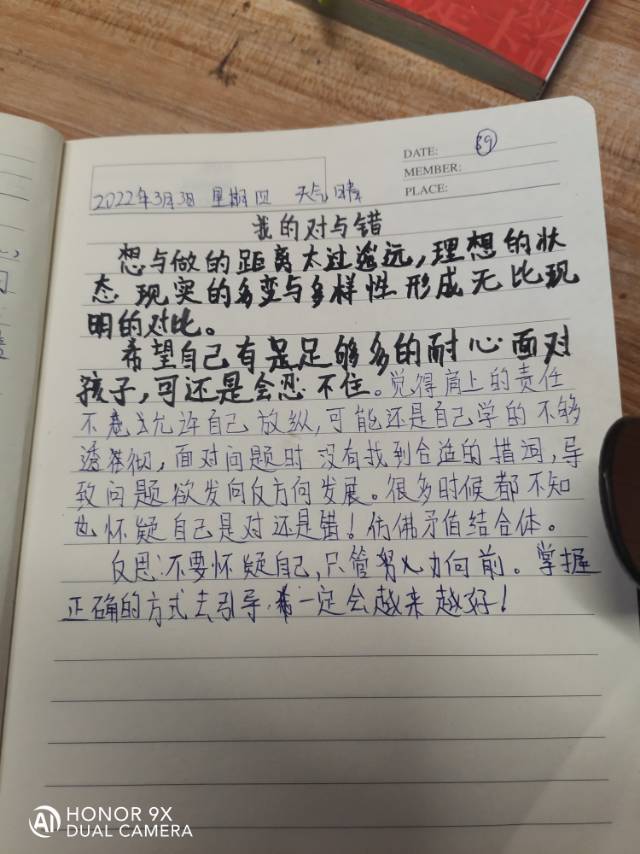 DATE: 69
MEMBER:
PLACE:
2022年3月3日 星期四 天气晴
我的对与错
想与做的距离太过遥远,理想的状
态现实的多变与多样性形成无比现
明的对比。
希望自己有是足够多的耐心面对
孩子,可还是会忍不住。觉得肩上的责任
不允许自己放纵,可能还是自己学的不够
透彻,面对问题时没有找到合适的措词,导
致问题欲发向反方向发展。很多时候都不知
也怀疑自己是对还是错!仿佛矛盾结合体。
反思:不要怀疑自己,只管努力向前。掌握
正确的方式去引导,一定会越来越好!
HONOR 9X
DUAL CAMERA